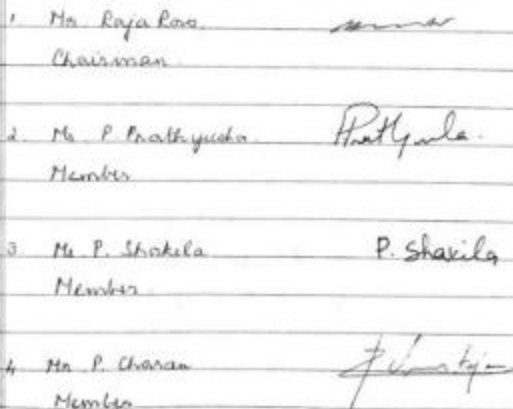 1 Mr Raja Rao.
Chairman
2. Ms P Prathyusha. Prathyusha.
Member
3 Ms P. Shakila P. Shakila
Member
4 Mr P. Charan
Member